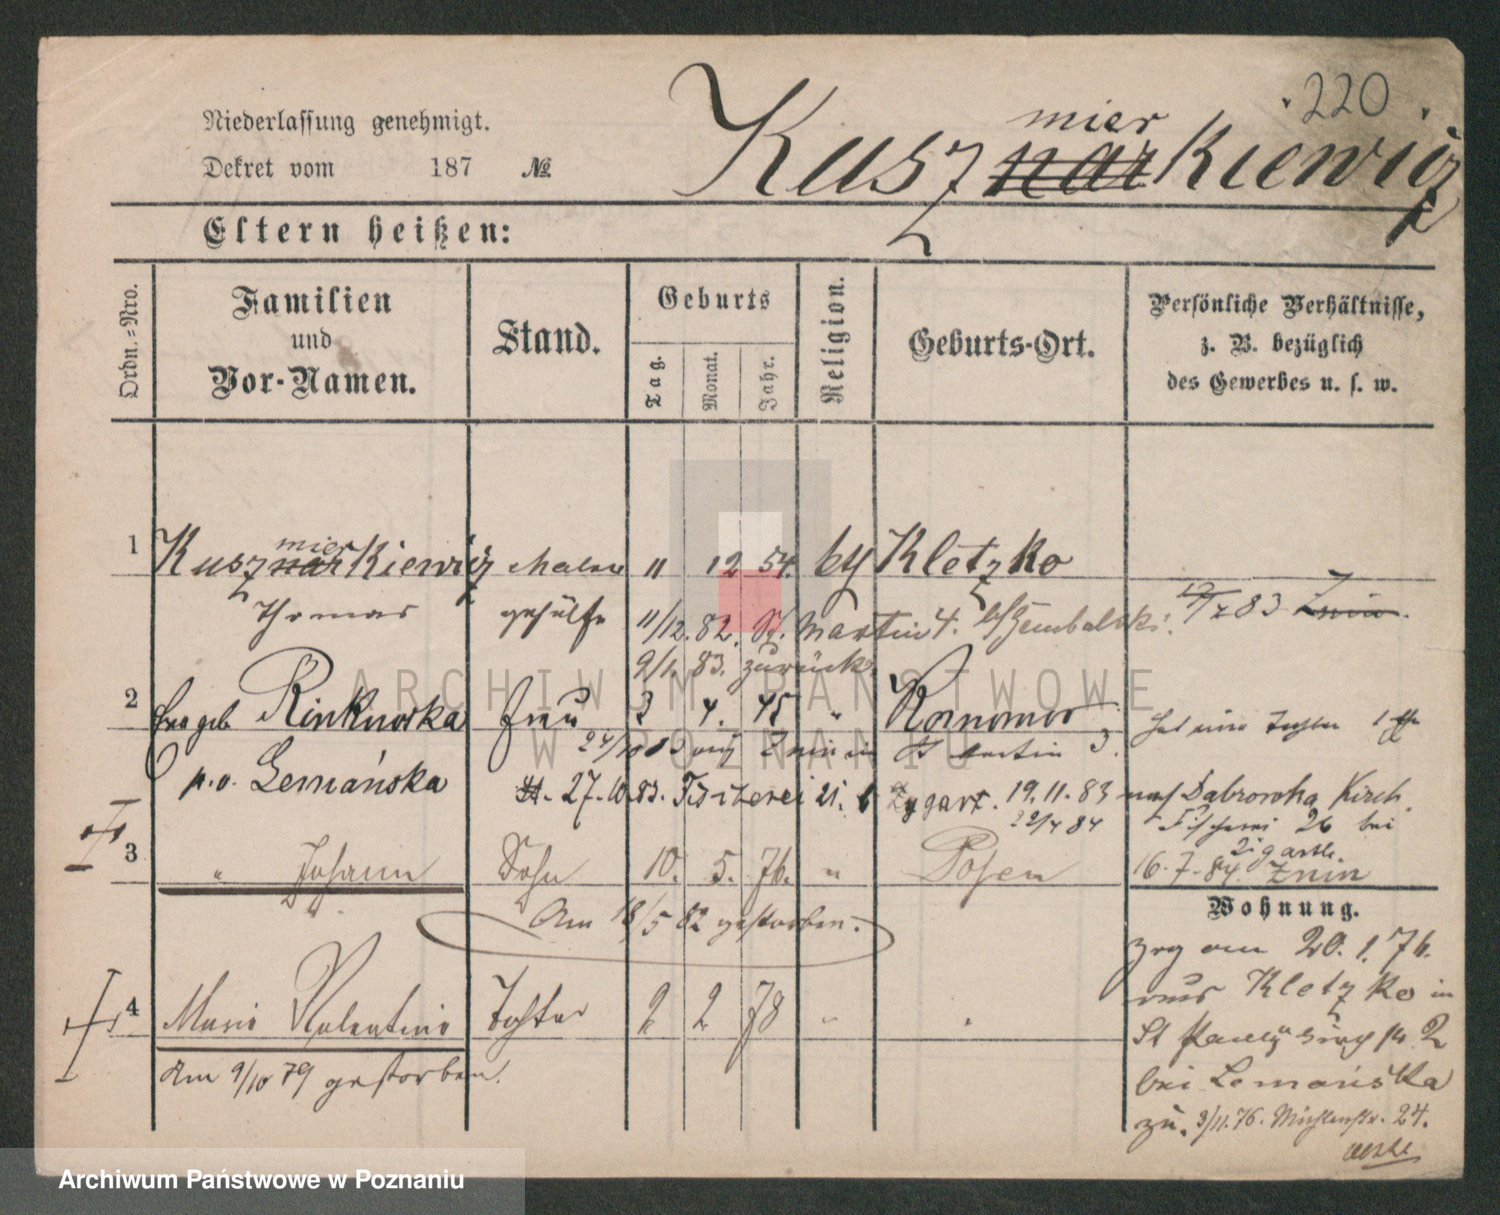 220
Niederlassung genehmigt.
Dekret vom 187 №
Kusznarkiewicz
mier
Eltern heißen:
Ordn.-Nro.
Familien
und
Vor-Namen.
Stand.
Geburts
Tag.
Monat.
Jahr.
Religion.
Geburts-Ort.
Persönliche Verhältnisse,
z. B. bezüglich
des Gewerbes u. s. w.
mier
1 Kusznarkiewicz Maler 11 12 54. kt Kletzko
Thomas gehülfe 11/12. 82. St. Martin 4. b/ Zembalski. 83 Znin.
9/1. 83. zurück.
2 Frau geb Rinknorka Frau 3 4. 45 "
St Martin 3.
p. v. Lemańska 27. 10. 83. Fischerei 21. b Zygart. 19.11.83 nach Dabrowka Kirch.
22/4 84 Fischerei 26 bei
Zigartk.
3 " Johann Sohn 10. 5. 76. " Posen 16. 7. 84. Znin
Am 18/5 82 gestorben.
Wohnung.
zog am 20. 1. 76.
aus Kletzko in
4 Marie Valentine Tochter 2 2 78 "
St
Am 9/10 79 gestorben.
bei Lemańska
zu. 3/11. 76. Mühlenstr. 24.
ARCHIWUM PAŃSTWOWE
W POZNANIU
Archiwum Państwowe w Poznaniu